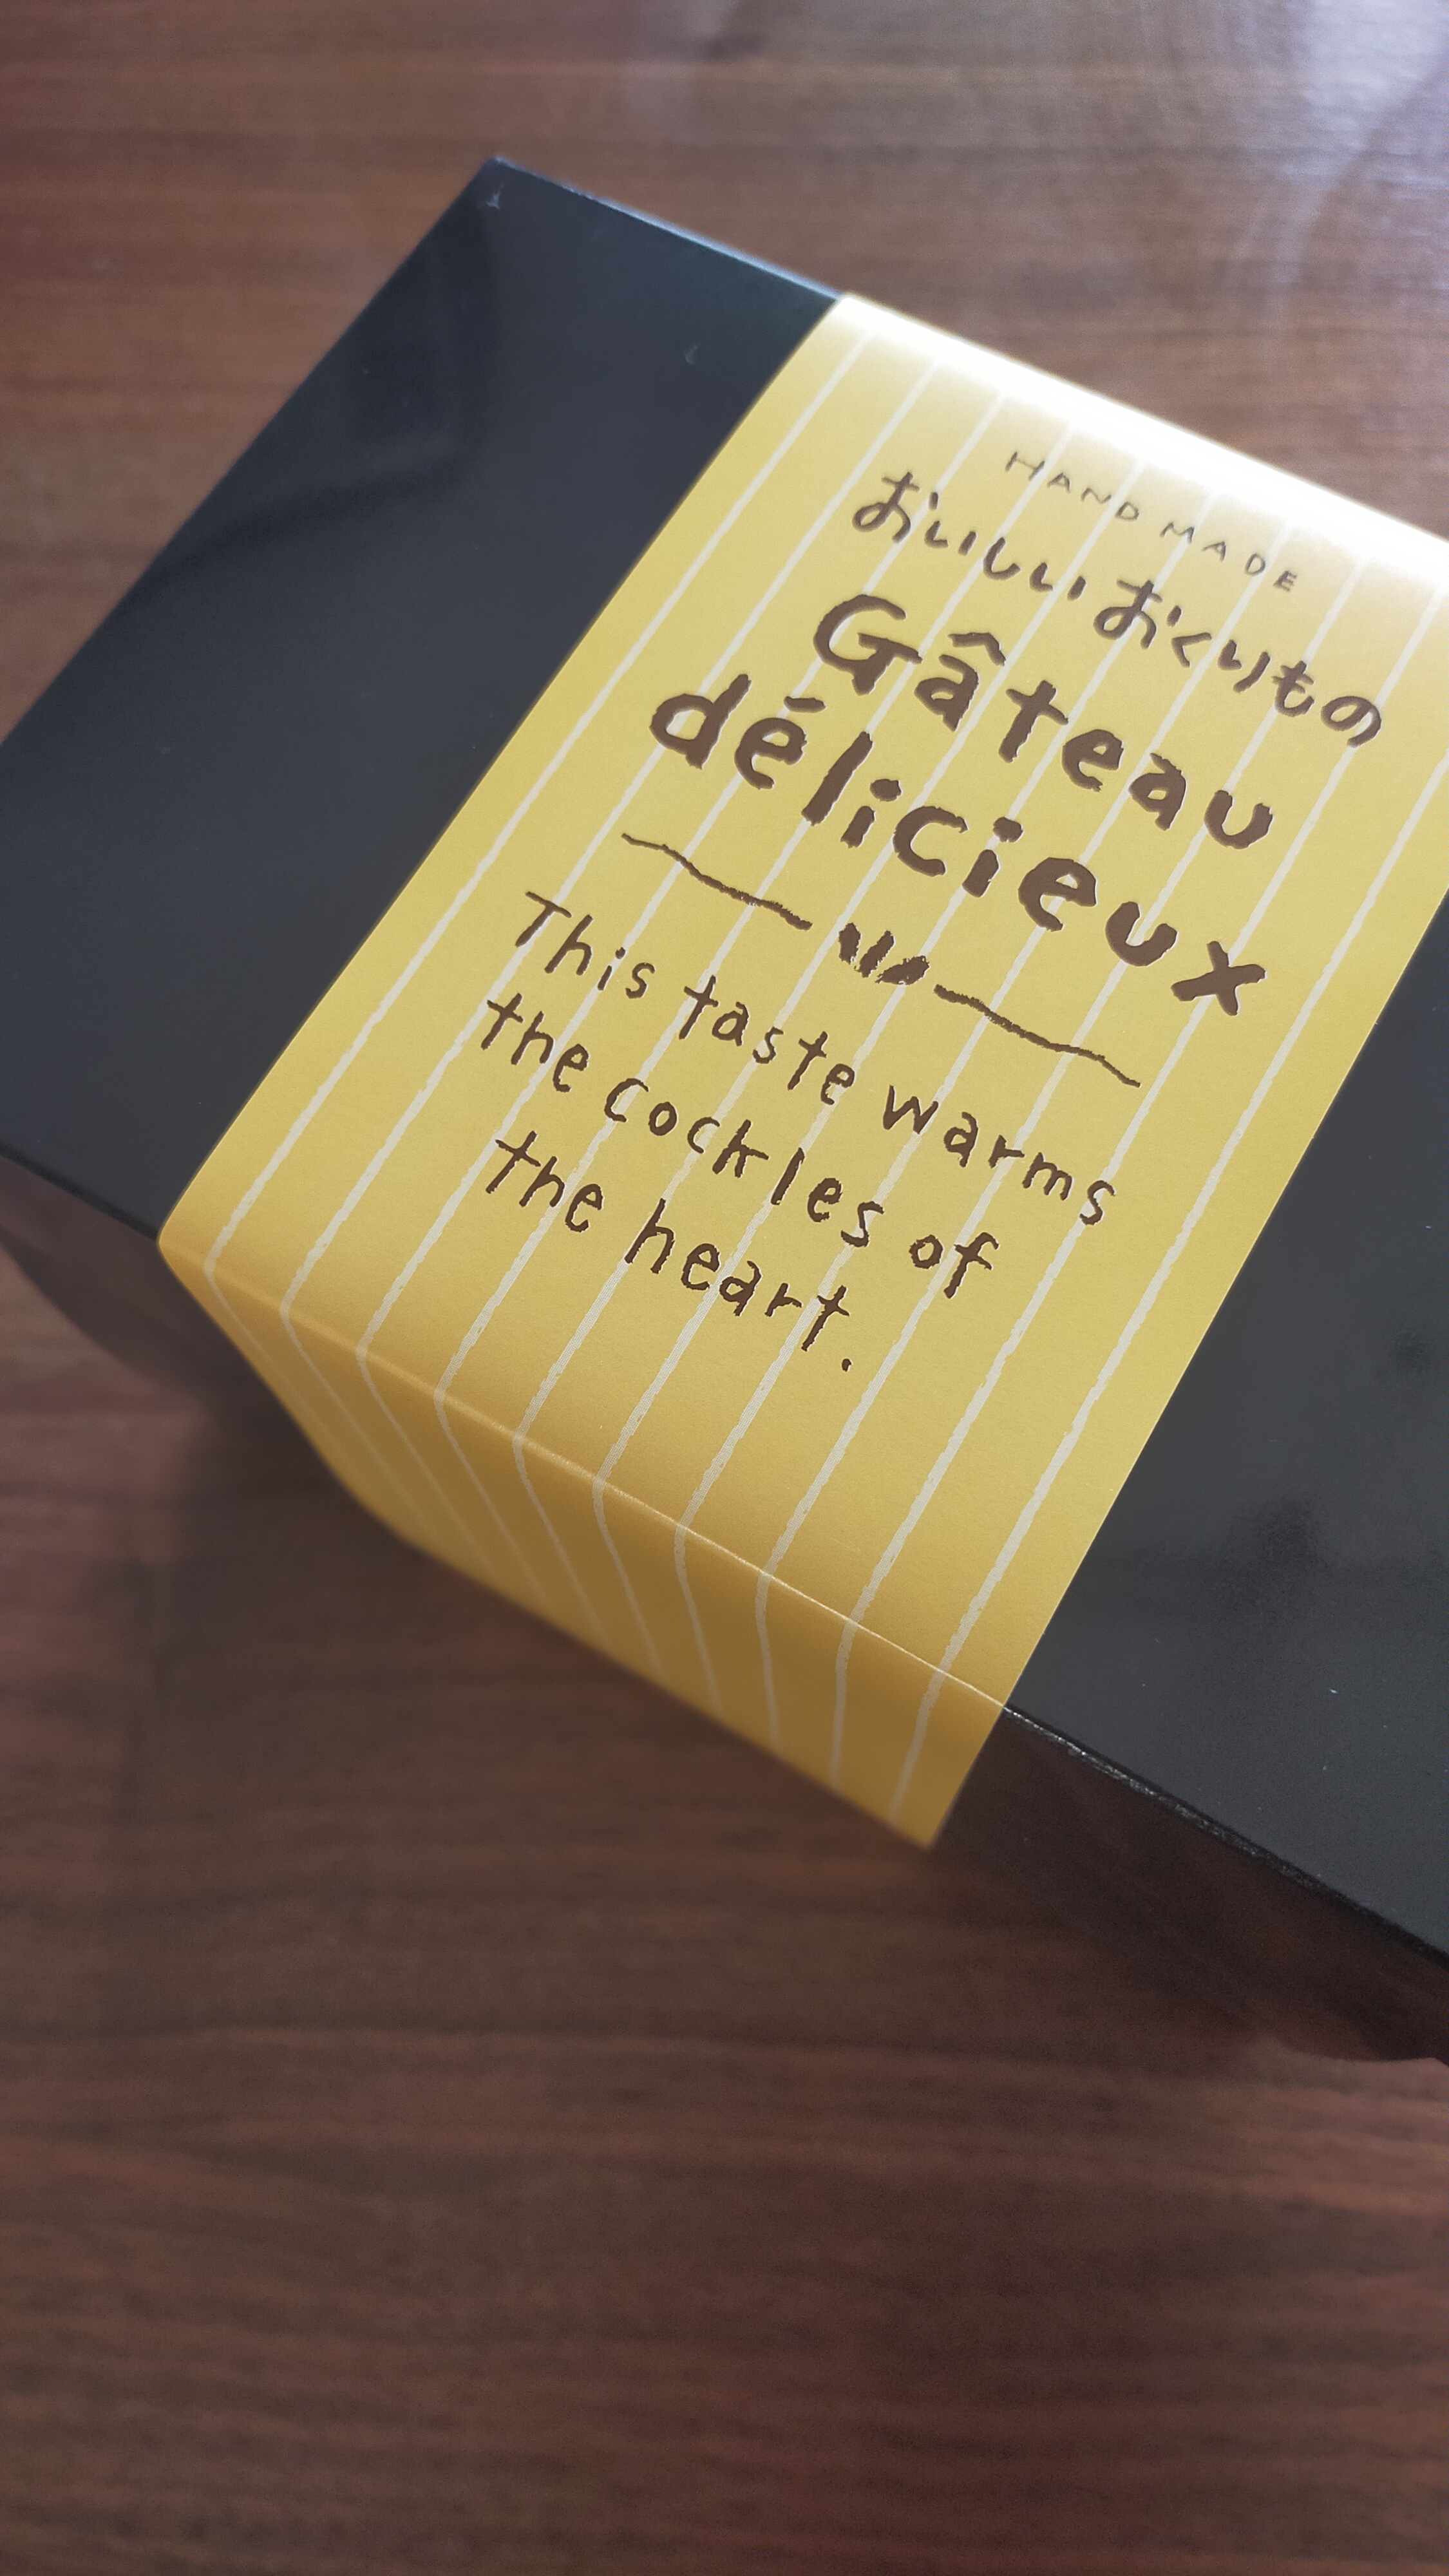 HAND MADE
おいしいおくりもの
Gâteau
délicieux
This taste warms
the cockles of
the heart.